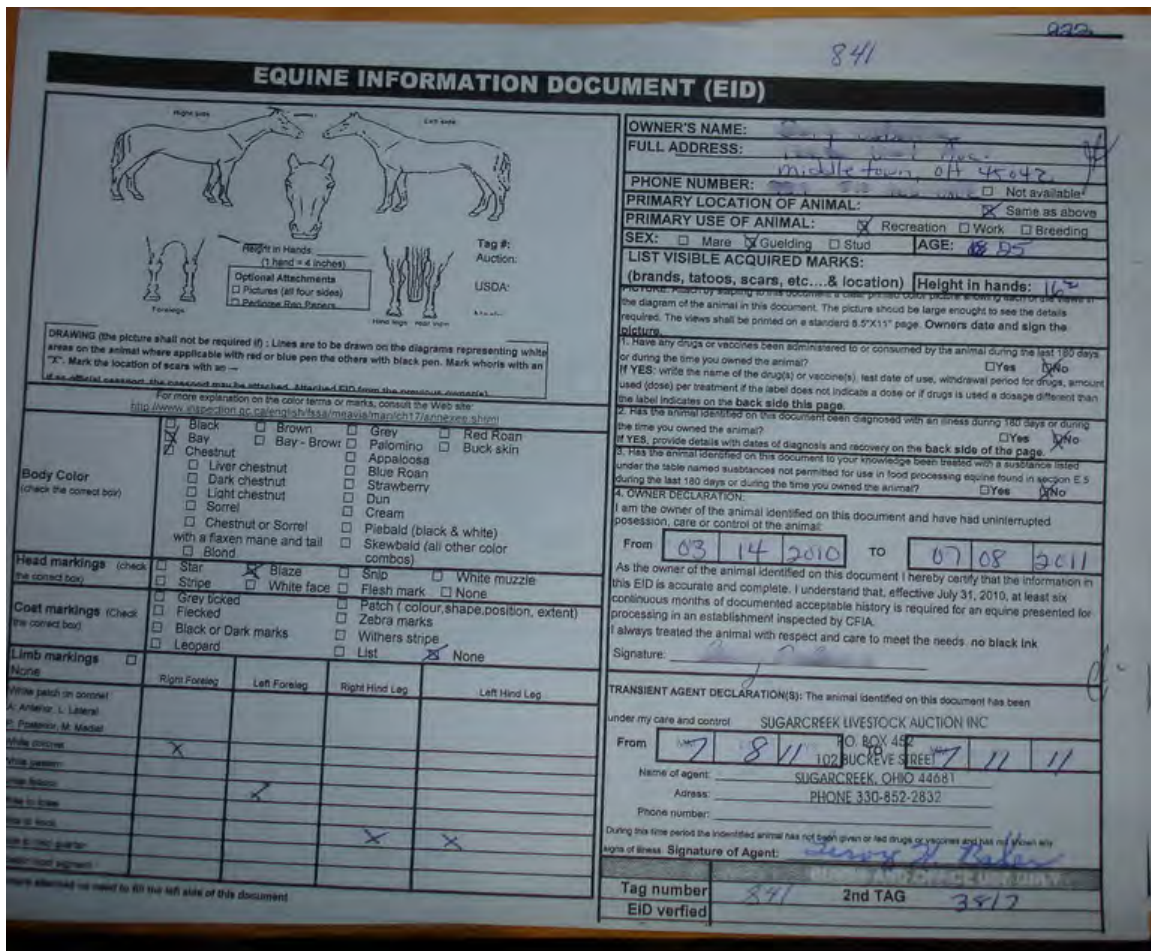 222
841
EQUINE INFORMATION DOCUMENT (EID)
Right side
Left side
Height in Hands
(1 hand = 4 inches)
Optional Attachments
☐ Pictures (all four sides)
☐ Pedigree Reg Papers
Tag #:
Auction:
USDA:
Forelegs
Hind legs rear view
DRAWING (the picture shall not be required if) : Lines are to be drawn on the diagrams representing white
areas on the animal where applicable with red or blue pen the others with black pen. Mark whoris with an
"X". Mark the location of scars with an →
If an official passport, the passport may be attached. Attached EID from the previous owner(s).
For more explanation on the color terms or marks, consult the Web site:
http://www.inspection.gc.ca/english/fssa/meavia/man/ch17/annexee.shtml
Body Color
(check the correct box)
☐ Black ☐ Brown ☐ Grey ☐ Red Roan
☒ Bay ☐ Bay - Brown ☐ Palomino ☐ Buck skin
☑ Chestnut ☐ Appaloosa
☐ Liver chestnut ☐ Blue Roan
☐ Dark chestnut ☐ Strawberry
☐ Light chestnut ☐ Dun
☐ Sorrel ☐ Cream
☐ Chestnut or Sorrel ☐ Piebald (black & white)
with a flaxen mane and tail ☐ Skewbald (all other color
☐ Blond combos)
Head markings (check the correct box)
☐ Star ☒ Blaze ☐ Snip ☐ White muzzle
☐ Stripe ☐ White face ☐ Flesh mark ☐ None
Coat markings (Check the correct box)
☐ Grey ticked ☐ Patch ( colour,shape,position, extent)
☐ Flecked ☐ Zebra marks
☐ Black or Dark marks ☐ Withers stripe
☐ Leopard ☐ List ☒ None
Limb markings ☐
None
Right Foreleg Left Foreleg Right Hind Leg Left Hind Leg
White patch on coronet
A: Anterior, L: Lateral
P: Posterior, M: Medial
White coronet X
White pastern
X
X X
no need to fill the left side of this document
OWNER'S NAME:
FULL ADDRESS:
middletown, OH 45042
PHONE NUMBER: ☐ Not available
PRIMARY LOCATION OF ANIMAL: ☒ Same as above
PRIMARY USE OF ANIMAL: ☒ Recreation ☐ Work ☐ Breeding
SEX: ☐ Mare ☒ Guelding ☐ Stud AGE: 25
LIST VISIBLE ACQUIRED MARKS:
(brands, tatoos, scars, etc....& location) Height in hands: 16²
PICTURE: Attach by stapling to this document a clear printed color picture showing each of the views in
the diagram of the animal in this document. The picture shoud be large enought to see the details
required. The views shall be printed on a standard 8.5"X11" page. Owners date and sign the
picture.
1. Have any drugs or vaccines been administered to or consumed by the animal during the last 180 days
or during the time you owned the animal? ☐Yes ☒No
If YES: write the name of the drug(s) or vaccine(s), last date of use, withdrawal period for drugs, amount
used (dose) per treatment if the label does not indicate a dose or if drugs is used a dosage different than
the label indicates on the back side this page.
2. Has the animal identified on this document been diagnosed with an illness during 180 days or during
the time you owned the animal? ☐Yes ☒No
If YES, provide details with dates of diagnosis and recovery on the back side of the page.
3. Has the animal identified on this document to your knowledge been treated with a susbtance listed
under the table named susbtances not permitted for use in food processing equine found in section E.5
during the last 180 days or during the time you owned the animal? ☐Yes ☒No
4. OWNER DECLARATION:
I am the owner of the animal identified on this document and have had uninterrupted
posession, care or control of the animal:
From 03 14 2010 TO 07 08 2011
As the owner of the animal identified on this document I hereby certify that the information in
this EID is accurate and complete. I understand that, effective July 31, 2010, at least six
continuous months of documented acceptable history is required for an equine presented for
processing in an establishment inspected by CFIA.
I always treated the animal with respect and care to meet the needs. no black ink
Signature:
TRANSIENT AGENT DECLARATION(S): The animal identified on this document has been
under my care and control SUGARCREEK LIVESTOCK AUCTION INC
P.O. BOX 452
From 7 8 11 TO 7 11 11
102 BUCKEYE STREET
Name of agent: SUGARCREEK, OHIO 44681
Adress: PHONE 330-852-2832
Phone number:
During this time period the indentified animal has not been given or fed drugs or vaccines and has not shown any
signs of illness. Signature of Agent: Leroy H Baker
OFFICE USE ONLY
Tag number 841 2nd TAG 3817
EID verfied